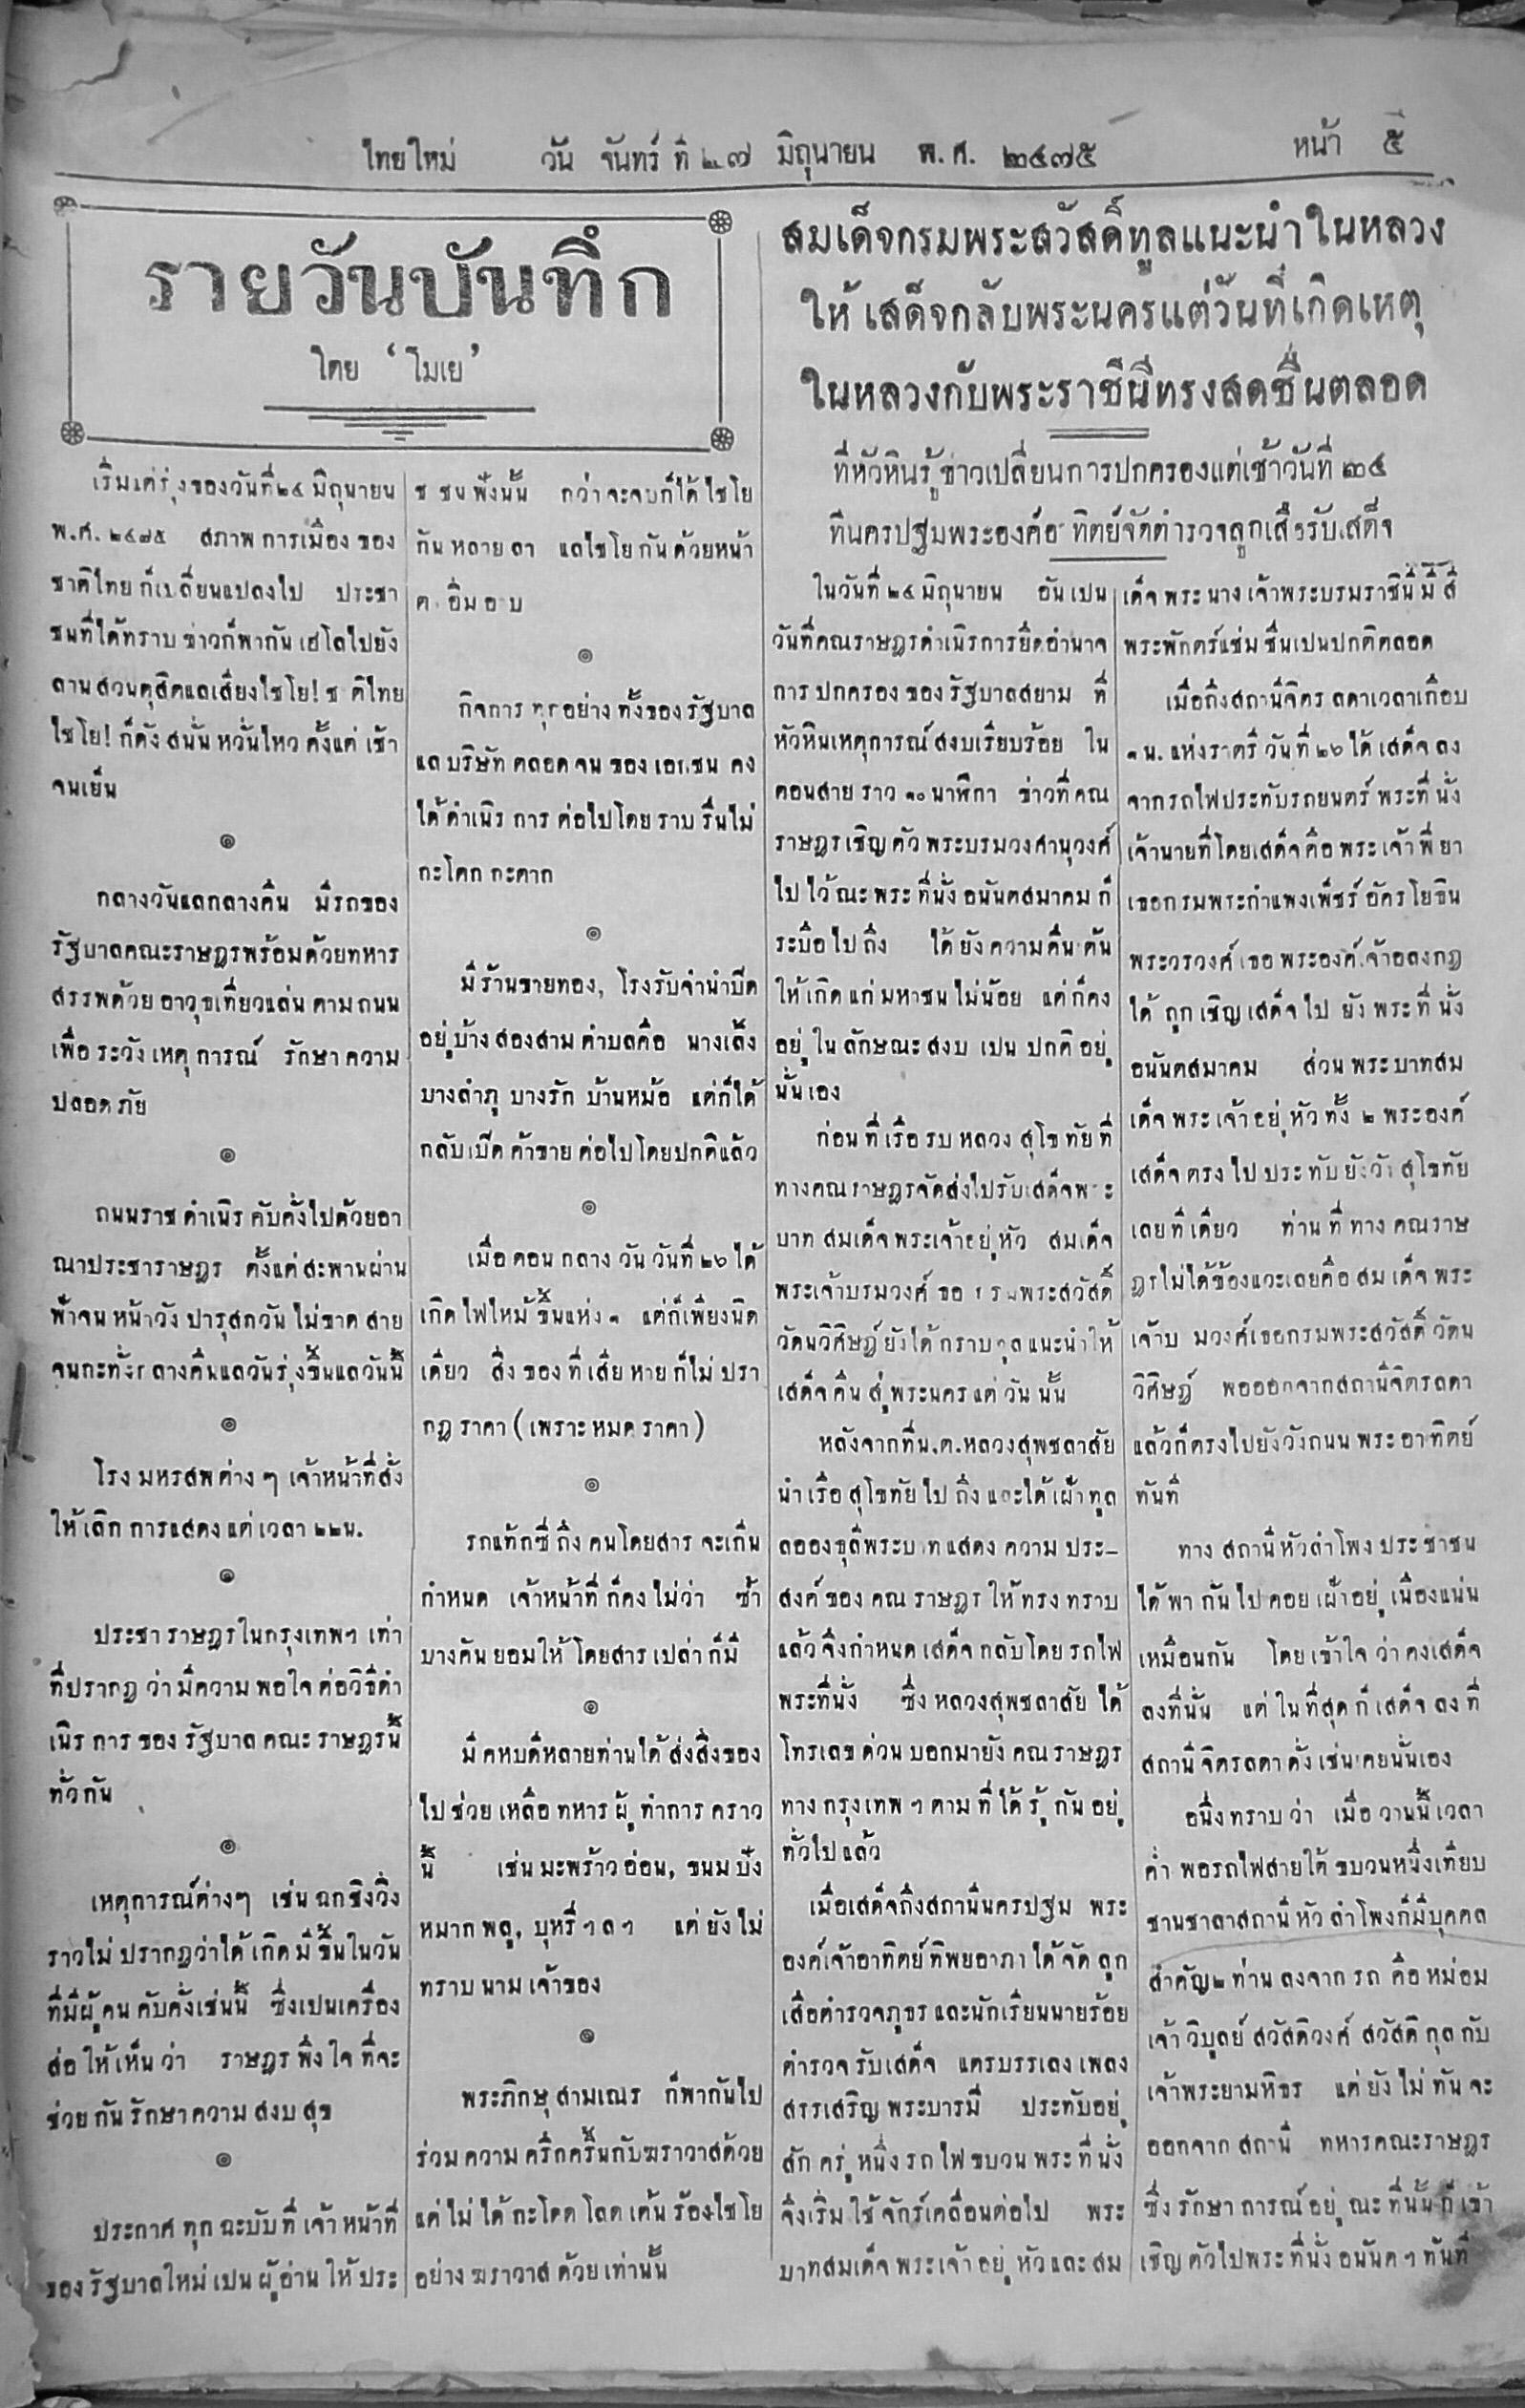 ไทยใหม่ วัน จันทร์ ที่ ๒๗ มิถุนายน พ.ศ. ๒๔๗๕ หน้า ๕
รายวันบันทึก
โดย ‘โมเย’
เริ่มแต่รุ่งของวันที่๒๔ มิถุนายน
พ.ศ. ๒๔๗๕ สภาพ การเมือง ของ
ชาติไทย ก็เปลี่ยนแปลงไป ประชา
ชนที่ได้ทราบ ข่าวก็พากัน เฮโลไปยัง
ลานสวนดุสิตแลเสียงไชโย! ช ติไทย
ไชโย! ก็ดัง สนั่น หวั่นไหว ตั้งแต่ เช้า
จนเย็น
๏
กลางวันแลกลางคืน มีรถของ
รัฐบาลคณะราษฎรพร้อมด้วยทหาร
สรรพด้วย อาวุธเที่ยวแล่น ตาม ถนน
เพื่อ ระวัง เหตุ การณ์ รักษา ความ
ปลอด ภัย
๏
ถนนราช ดำเนิร คับคั่งไปด้วยอา
ณาประชาราษฎร ตั้งแต่ สะพานผ่าน
ฟ้าจน หน้าวัง ปารุสกวัน ไม่ขาด สาย
จนกะทั่งกลางคืนแลวันรุ่งขึ้นแลวันนี้
๏
โรง มหรสพ ต่าง ๆ เจ้าหน้าที่สั่ง
ให้ เลิก การแสดง แต่ เวลา ๒๒น.
๏
ประชา ราษฎร ในกรุงเทพฯ เท่า
ที่ปรากฎ ว่า มีความ พอใจ ต่อวิธีดำ
เนิร การ ของ รัฐบาล คณะ ราษฎรนี้
ทั่วกัน
๏
เหตุการณ์ต่างๆ เช่น ฉกชิงวิ่ง
ราวไม่ ปรากฎว่าได้ เกิด มี ขึ้น ในวัน
ที่มีผู้ คน คับคั่งเช่นนี้ ซึ่งเปนเครื่อง
ส่อ ให้ เห็น ว่า ราษฎร พึง ใจ ที่จะ
ช่วย กัน รักษา ความ สงบ สุข
๏
ประกาศ ทุก ฉะบับ ที่ เจ้า หน้าที่
ของ รัฐบาลใหม่ เปน ผู้ อ่าน ให้ ประ
ช ชน ฟังนั้น กว่า จะ จบก็ได้ ไชโย
กัน หลาย ลา แลไชโย กัน ด้วยหน้า
ต อิ่ม อ บ
๏
กิจการ ทุกอย่าง ทั้งของ รัฐบาล
แล บริษัท ตลอด จน ของ เอกชน คง
ได้ ดำเนิร การ ต่อไปโดย ราบ รื่นไม่
กะโตก กะตาก
๏
มี ร้านขายทอง, โรงรับจำนำปีด
อยู่บ้าง สองสาม ตำบลคือ นางเลิ้ง
บางลำภู บางรัก บ้านหม้อ แต่ก็ได้
กลับเปีด ค้าขาย ต่อไป โดยปกติแล้ว
๏
เมื่อ ตอน กลาง วัน วันที่ ๒๖ ได้
เกิด ไฟไหม้ ขึ้นแห่ง ๑ แต่ก็เพียงนิด
เดียว สิ่ง ของ ที่ เสีย หาย ก็ไม่ ปรา
กฎ ราคา ( เพราะ หมด ราคา )
๏
รถแท๊กซี่ ถึง คนโดยสาร จะเกิน
กำหนด เจ้าหน้าที่ ก็คง ไม่ว่า ซ้ำ
บางคัน ยอมให้ โดยสาร เปล่า ก็มี
๏
มี คหบดีหลายท่านได้ ส่งสิ่งของ
ไป ช่วย เหลือ ทหาร ผู้ ทำการ คราว
นี้ เช่น มะพร้าว อ่อน, ขนม ปัง
หมาก พลู, บุหรี่ ฯ ล ฯ แต่ ยัง ไม่
ทราบ นาม เจ้าของ
๏
พระภิกษุ สามเณร ก็พากันไป
ร่วม ความ ครึกครื้นกับฆราวาสด้วย
แต่ ไม่ ได้ กะโดด โลด เต้น ร้องไชโย
อย่าง ฆราวาส ด้วย เท่านั้น
สมเด็จกรมพระสวัสดิ์ทูลแนะนำในหลวง
ให้ เสด็จกลับพระนครแต่วันที่เกิดเหตุ
ในหลวงกับพระราชินีทรงสดชื่นตลอด
ที่หัวหินรู้ข่าวเปลี่ยนการปกครองแต่เช้าวันที่ ๒๔
ที่นครปฐมพระองค์อาทิตย์จัดตำรวจลูกเสือรับเสด็จ
ในวันที่ ๒๔ มิถุนายน อัน เปน
วันที่คณราษฎรดำเนิรการยึดอำนาจ
การ ปกครอง ของ รัฐบาลสยาม ที่
หัวหินเหตุการณ์ สงบเรียบร้อย ใน
ตอนสาย ราว ๑๐ นาฬิกา ข่าวที่ คณ
ราษฎร เชิญ ตัว พระบรมวงศานุวงศ์
ไป ไว้ ณะ พระ ที่นั่ง อนันตสมาคม ก็
ระบือ ไป ถึง ได้ ยัง ความตื่น ต้น
ให้ เกิด แก่ มหาชน ไม่น้อย แต่ ก็คง
อยู่ ใน ลักษณะ สงบ เปน ปกติ อยู่
นั่น เอง
ก่อน ที่ เรือ รบ หลวง สุโข ทัย ที่
ทางคณ ราษฎรจัดส่งไปรับเสด็จพระ
บาท สมเด็จ พระเจ้าอยู่ หัว สมเด็จ
พระเจ้าบรมวงศ์ เธอ กรมพระสวัสดิ์
วัดนวิศิษฎ์ ยังได้ กราบทูล แนะนำให้
เสด็จ คืน สู่ พระนคร แต่ วัน นั้น
หลังจากที่น.ต.หลวงสุพชลาสัย
นำ เรือ สุโขทัย ไป ถึง และได้ เฝ้า ทูล
ลอองธุลีพระบาท แสดง ความ ประ–
สงค์ ของ คณ ราษฎร ให้ ทรง ทราบ
แล้ว จึงกำหนด เสด็จ กลับโดย รถไฟ
พระที่นั่ง ซึ่ง หลวงสุพชลาสัย ได้
โทรเลข ด่วน บอกมายัง คณ ราษฎร
ทาง กรุงเทพ ฯ ตาม ที่ ได้ รู้ กัน อยู่
ทั่วไป แล้ว
เมื่อเสด็จถึงสถานีนครปฐม พระ
องค์เจ้าอาทิตย์ทิพยอาภา ได้ จัด ลูก
เสือตำรวจภูธร และนักเรียนนายร้อย
ตำรวจ รับเสด็จ แตรบรรเลง เพลง
สรรเสริญ พระบารมี ประทับอยู่
สัก ครู่ หนึ่ง รถ ไฟ ขบวน พระ ที่ นั่ง
จึงเริ่ม ใช้ จักร์เคลื่อนต่อไป พระ
บาทสมเด็จ พระเจ้า อยู่ หัว และ สม
เด็จ พระ นาง เจ้าพระบรมราชินี มี สี
พระพักตร์แช่ม ชื่นเปนปกติตลอด
เมื่อถึงสถานีจิตร ลดาเวลาเกือบ
๑ น. แห่งราตรี วันที่ ๒๖ ได้ เสด็จ ลง
จากรถไฟประทับรถยนตร์ พระที่ นั่ง
เจ้านายที่โดยเสด็จ คือ พระ เจ้า พี่ ยา
เธอกรมพระกำแพงเพ็ชร์ อัคร โยธิน
พระวรวงศ์ เธอ พระองค์เจ้าอลงกฎ
ได้ ถูก เชิญ เสด็จ ไป ยัง พระ ที่ นั่ง
อนันตสมาคม ส่วน พระ บาทสม
เด็จ พระ เจ้า อยู่ หัว ทั้ง ๒ พระองค์
เสด็จ ตรง ไป ประทับ ยังวัง สุโขทัย
เลย ที เดียว ท่าน ที่ ทาง คณ ราษ
ฎรไม่ได้ข้องแวะเลยคือ สม เด็จ พระ
เจ้าบ มวงศ์เธอกรมพระสวัสดิ์ วัดน
วิศิษฎ์ พอออกจากสถานีจิตรลดา
แล้วก็ตรงไปยังวังถนน พระ อาทิตย์
ทันที
ทาง สถานี หัวลำโพง ประชาชน
ได้ พา กัน ไป คอย เฝ้าอยู่ เนืองแน่น
เหมือนกัน โดย เข้าใจ ว่า คงเสด็จ
ลงที่นั่น แต่ ใน ที่สุด ก็ เสด็จ ลง ที่
สถานี จิตรลดา ดั่ง เช่นเคยนั่นเอง
อนึ่งทราบ ว่า เมื่อ วานนี้ เวลา
ค่ำ พอรถไฟสายใต้ ขบวนหนึ่งเทียบ
ชานชาลาสถานี หัว ลำโพงก็มีบุคคล
สำคัญ๒ ท่าน ลงจาก รถ คือ หม่อม
เจ้า วิบูลย์ สวัสดิวงศ์ สวัสดิ กุล กับ
เจ้าพระยามหิธร แต่ ยัง ไม่ ทัน จะ
ออกจาก สถานี ทหารคณะราษฎร
ซึ่ง รักษา การณ์ อยู่ ณะ ที่นั้น ก็ เข้า
เชิญ ตัวไปพระ ที่นั่ง อนันต ฯ ทันที